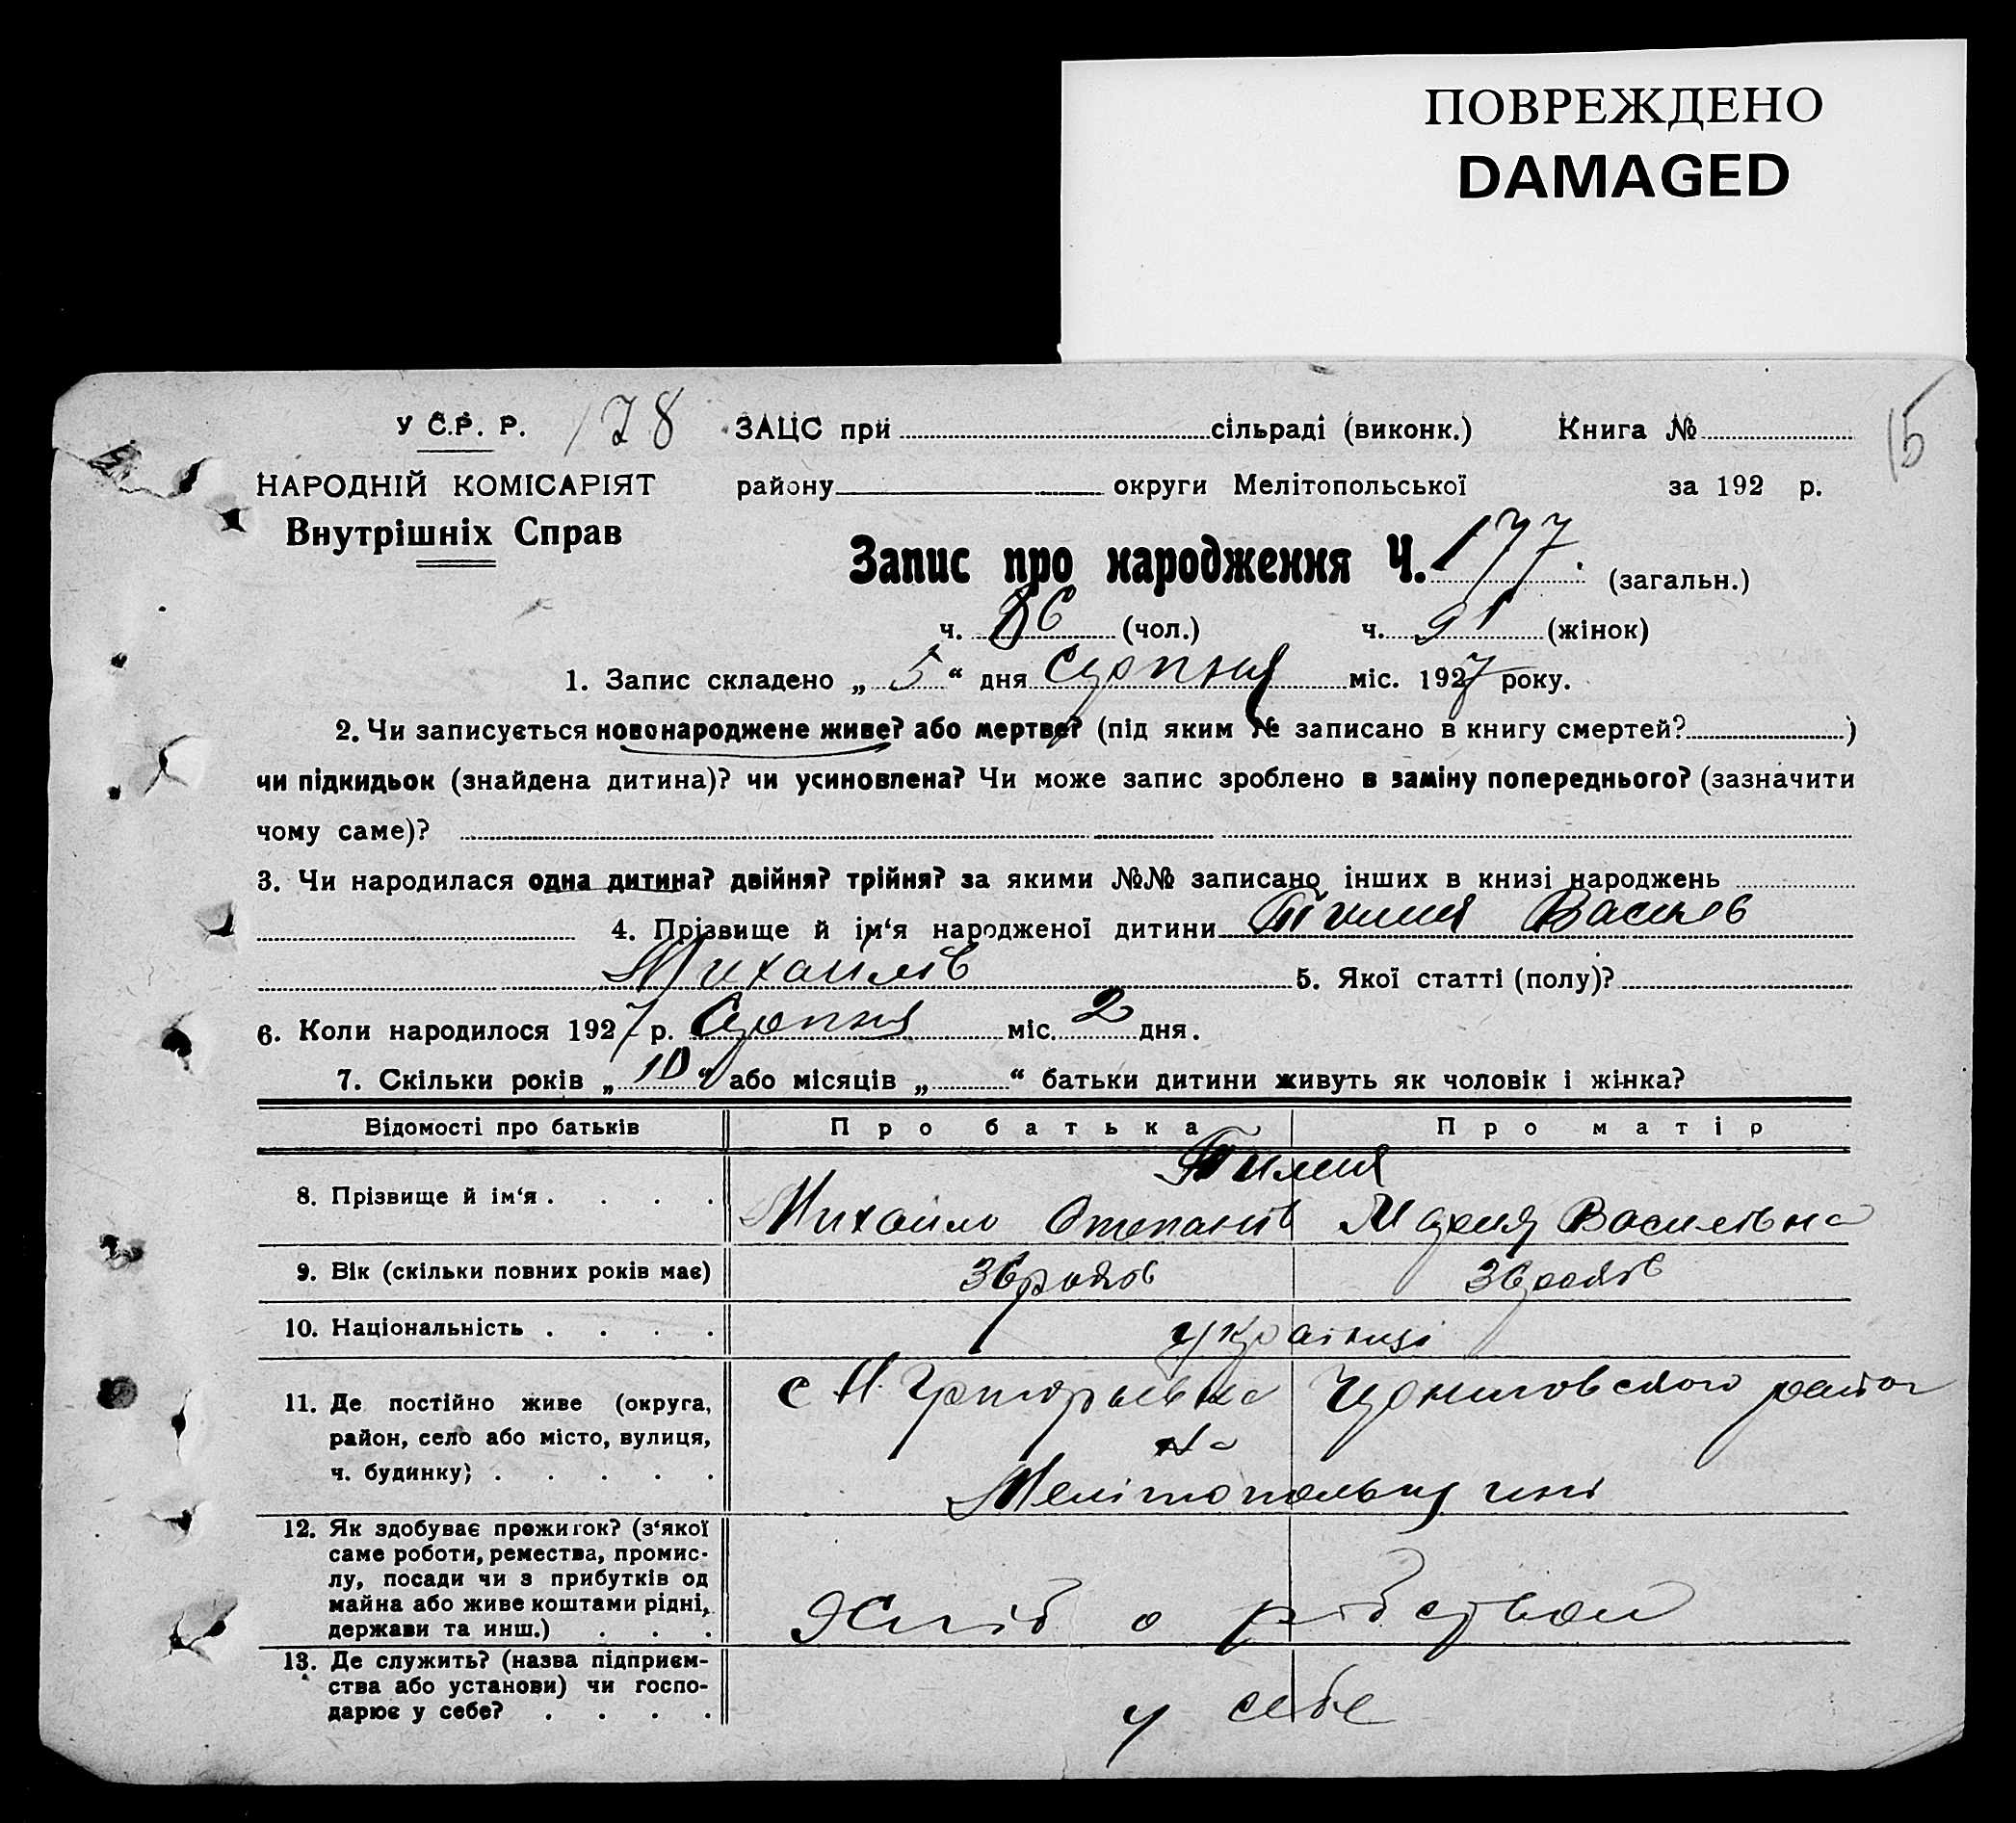 ПОВРЕЖДЕНО
DAMAGED
У С.Р. Р. 178 ЗАЦС при сільраді (виконк.) Книга № 15
НАРОДНІЙ КОМІСАРІЯТ району округи Мелітопольської за 192 р.
Внутрішніх Справ
Запис про народження Ч. 177. (загальн.)
ч. 86 (чол.) ч. 91 (жінок)
1. Запис складено „ 5 “ дня Серпня міс. 1927 року.
2. Чи записується новонароджене живе? або мертве? (під яким № записано в книгу смертей? )
чи підкидьок (знайдена дитина)? чи усиновлена? Чи може запис зроблено в заміну попереднього? (зазначити
чому саме)?
3. Чи народилася одна дитина? двійня? трійня? за якими №№ записано інших в книзі народжень
4. Прізвище й ім‘я народженої дитини
Михайлів 5. Якої статті (полу)?
6. Коли народилося 1927 р. Серпня міс. 2 дня.
7. Скільки років „ 10 “ або місяців „ “ батьки дитини живуть як чоловік і жінка?
Відомості про батьків Про батька Про матір
8. Прізвище й ім‘я . . . .
Михайло Степанів Мария Василівна
9. Вік (скільки повних років має) 36 років 36 років
10. Національність . . . . українці
11. Де постійно живе (округа, с Н Григорьевка район
район, село або місто, вулиця, на
ч. будинку; . . . . . Мелітопольщині
12. Як здобуває прожиток? (з‘якої
саме роботи, ремества, промис-
лу, посади чи з прибутків од
майна або живе коштами рідні,
держави та инш.) . . . Хліборобством
13. Де служить? (назва підприєм-
ства або установи) чи госпо-
дарює у себе? . . . . у себе